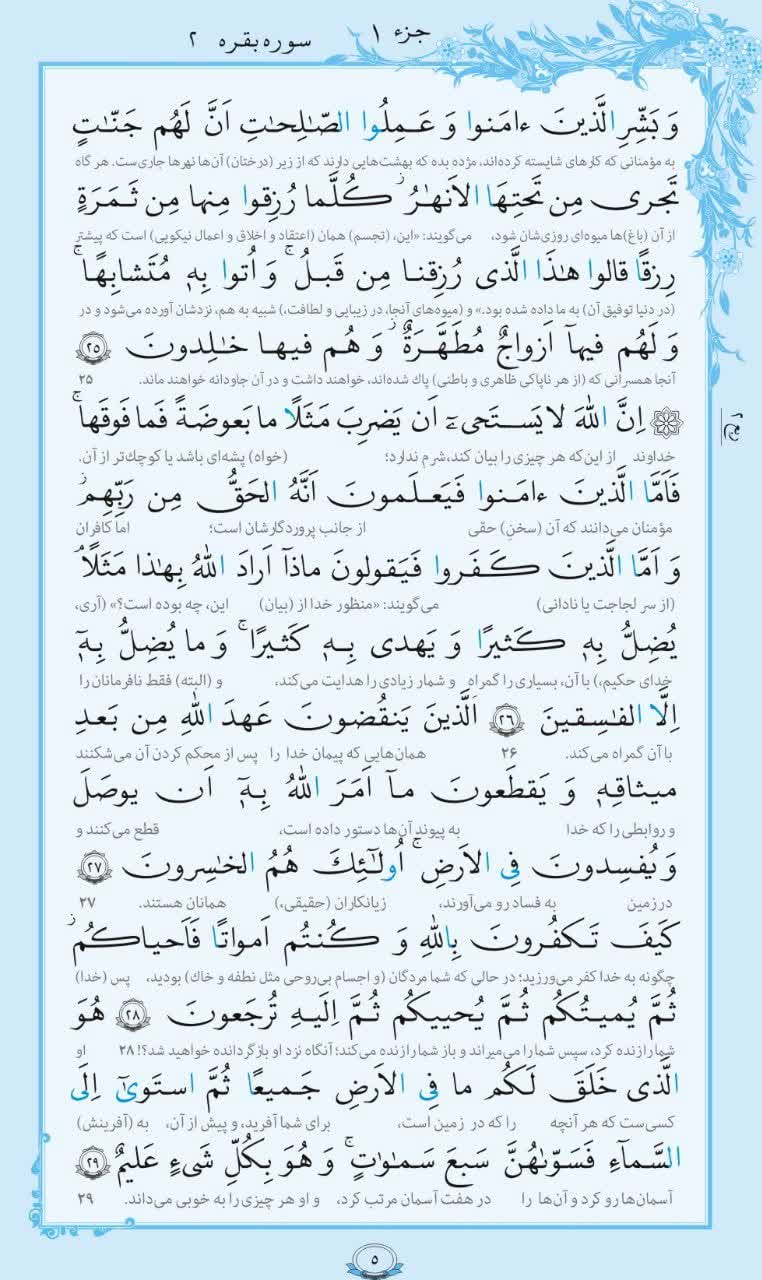 جزء ۱
سوره بقره ۲
وَ بَشِّرِ الَّذینَ ءامَنوا وَ عَمِلُوا الصّٰلِحاتِ اَنَّ لَهُم جَنّٰتٍ
به مؤمنانی که کارهای شایسته کرده‌اند، مژده بده که بهشت‌هایی دارند که از زیر (درختان) آن‌ها نهرها جاری‌ست. هر گاه
تَجری مِن تَحتِهَا الاَنهٰرُ ۖ کُلَّما رُزِقوا مِنها مِن ثَمَرَةٍ
از آن (باغ)ها میوه‌ای روزی‌شان شود، می‌گویند: «این، (تجسم) همان (اعتقاد و اخلاق و اعمال نیکویی) است که پیشتر
رِزقًا قالوا هٰذَا الَّذی رُزِقنا مِن قَبلُ ۖ وَ اُتوا بِهٖ مُتَشابِهًا ۖ
(در دنیا توفیق آن) به ما داده شده بود.» و (میوه‌های آنجا، در زیبایی و لطافت،) شبیه به هم، نزدشان آورده می‌شود و در
وَ لَهُم فیهآ اَزواجٌ مُطَهَّرَةٌ ۖ وَ هُم فیها خٰلِدونَ ۲۵
آنجا همسرانی که (از هر ناپاکی ظاهری و باطنی) پاك شده‌اند، خواهند داشت و در آن جاودانه خواهند ماند. ۲۵
اِنَّ اللّٰهَ لا یَستَحیٖٓ اَن یَضرِبَ مَثَلًا ما بَعوضَةً فَما فَوقَها ۚ
خداوند از این‌که هر چیزی را بیان کند، شرم ندارد؛ (خواه) پشه‌ای باشد یا کوچك‌تر از آن.
فَاَمَّا الَّذینَ ءامَنوا فَیَعلَمونَ اَنَّهُ الحَقُّ مِن رَبِّهِم ۖ
مؤمنان می‌دانند که آن (سخنِ) حقی از جانب پروردگارشان است؛ اما کافران
وَ اَمَّا الَّذینَ کَفَروا فَیَقولونَ ماذآ اَرادَ اللّٰهُ بِهٰذا مَثَلًا ۘ
(از سر لجاجت یا نادانی) می‌گویند: «منظور خدا از (بیان) این، چه بوده است؟» (آری،
یُضِلُّ بِهٖ کَثیرًا وَ یَهدی بِهٖ کَثیرًا ۚ وَ ما یُضِلُّ بِهٖٓ
خدای حکیم،) با آن، بسیاری را گمراه و شمار زیادی را هدایت می‌کند، و (البته) فقط نافرمانان را
اِلَّا الفٰسِقینَ ۲۶ اَلَّذینَ یَنقُضونَ عَهدَ اللّٰهِ مِن بَعدِ
با آن گمراه می‌کند. ۲۶ همان‌هایی که پیمان خدا را پس از محکم کردن آن می‌شکنند
میثاقِهٖ وَ یَقطَعونَ مآ اَمَرَ اللّٰهُ بِهٖٓ اَن یوصَلَ
و روابطی را که خدا به پیوند آن‌ها دستور داده است، قطع می‌کنند و
وَ یُفسِدونَ فِی الاَرضِ ۚ اُولٰٓئِكَ هُمُ الخٰسِرونَ ۲۷
در زمین به فساد رو می‌آورند، زیانکاران (حقیقی،) همانان هستند. ۲۷
کَیفَ تَکفُرونَ بِاللّٰهِ وَ کُنتُم اَمواتًا فَاَحیاکُم ۖ
چگونه به خدا کفر می‌ورزید؛ در حالی که شما مردگان (و اجسام بی‌روحی مثل نطفه و خاك) بودید، پس (خدا)
ثُمَّ یُمیتُکُم ثُمَّ یُحییکُم ثُمَّ اِلَیهِ تُرجَعونَ ۲۸ هُوَ
شما را زنده کرد، سپس شما را می‌میراند و باز شما را زنده می‌کند؛ آنگاه نزد او بازگردانده خواهید شد؟! ۲۸ او
الَّذی خَلَقَ لَکُم ما فِی الاَرضِ جَمیعًا ثُمَّ استَویٰٓ اِلَی
کسی‌ست که هر آنچه را که در زمین است، برای شما آفرید، و پیش از آن، به (آفرینش)
السَّمآءِ فَسَوّٰهُنَّ سَبعَ سَمٰوٰتٍ ۚ وَ هُوَ بِکُلِّ شَیءٍ عَلیمٌ ۲۹
آسمان‌ها رو کرد و آن‌ها را در هفت آسمان مرتب کرد، و او هر چیزی را به خوبی می‌داند. ۲۹
۵